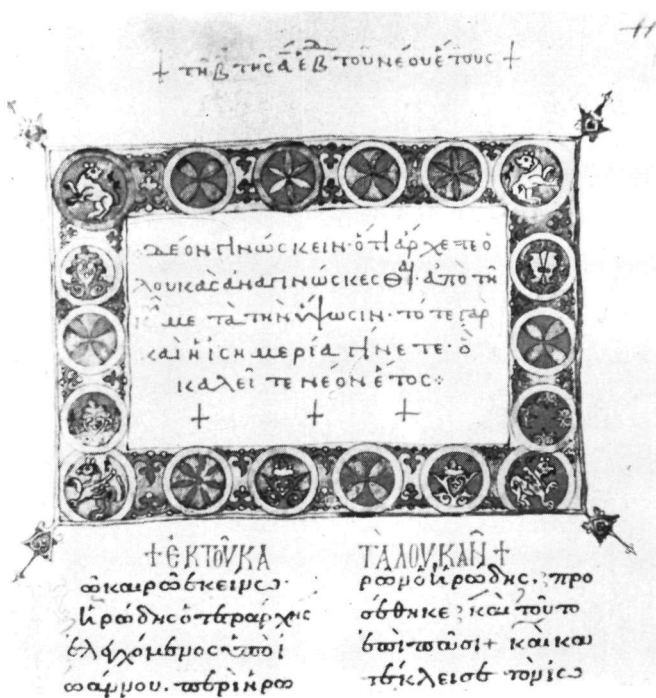 + τῆ β τῆς ᾱ ἑβ τοῦ νέου ἔτους +
Δέον γινώσκειν· ὅτι ἄρχετε ὁ
λουκᾶς ἀναγινώσκεσθαι· ἀπὸ τῆ
μετὰ τὴν ὕψωσιν· τότε γὰρ
καὶ ἡ ἰσημερία γίνετε· ὁ
καλεῖτε νέον ἔτος·
+ + +
+ ἐκ τοῦ κα
ὦ καιρῶ ἐκείνω·
ἡρώδης ὁ τετράρχης
ἐλεχόμενος ὑπὸ ἰ
ωάννου. περὶ ἡρω
τὰ λουκᾶν +
ρων ὁ ἡρώδης. προ
σέθηκε καὶ τοῦτο
ἐπὶ πᾶσι + καὶ κα
τέκλεισε τὸν ἰω